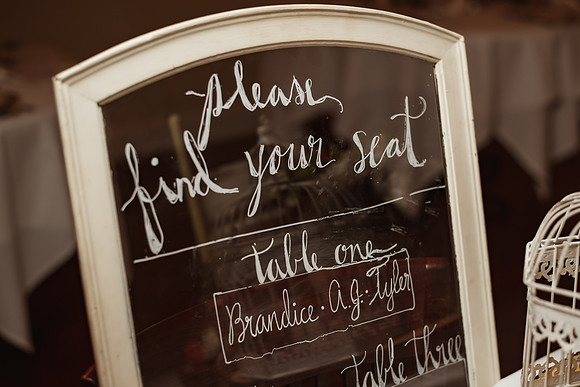 please
find your seat
table one
Brandice · A.J. · Tyler
table three